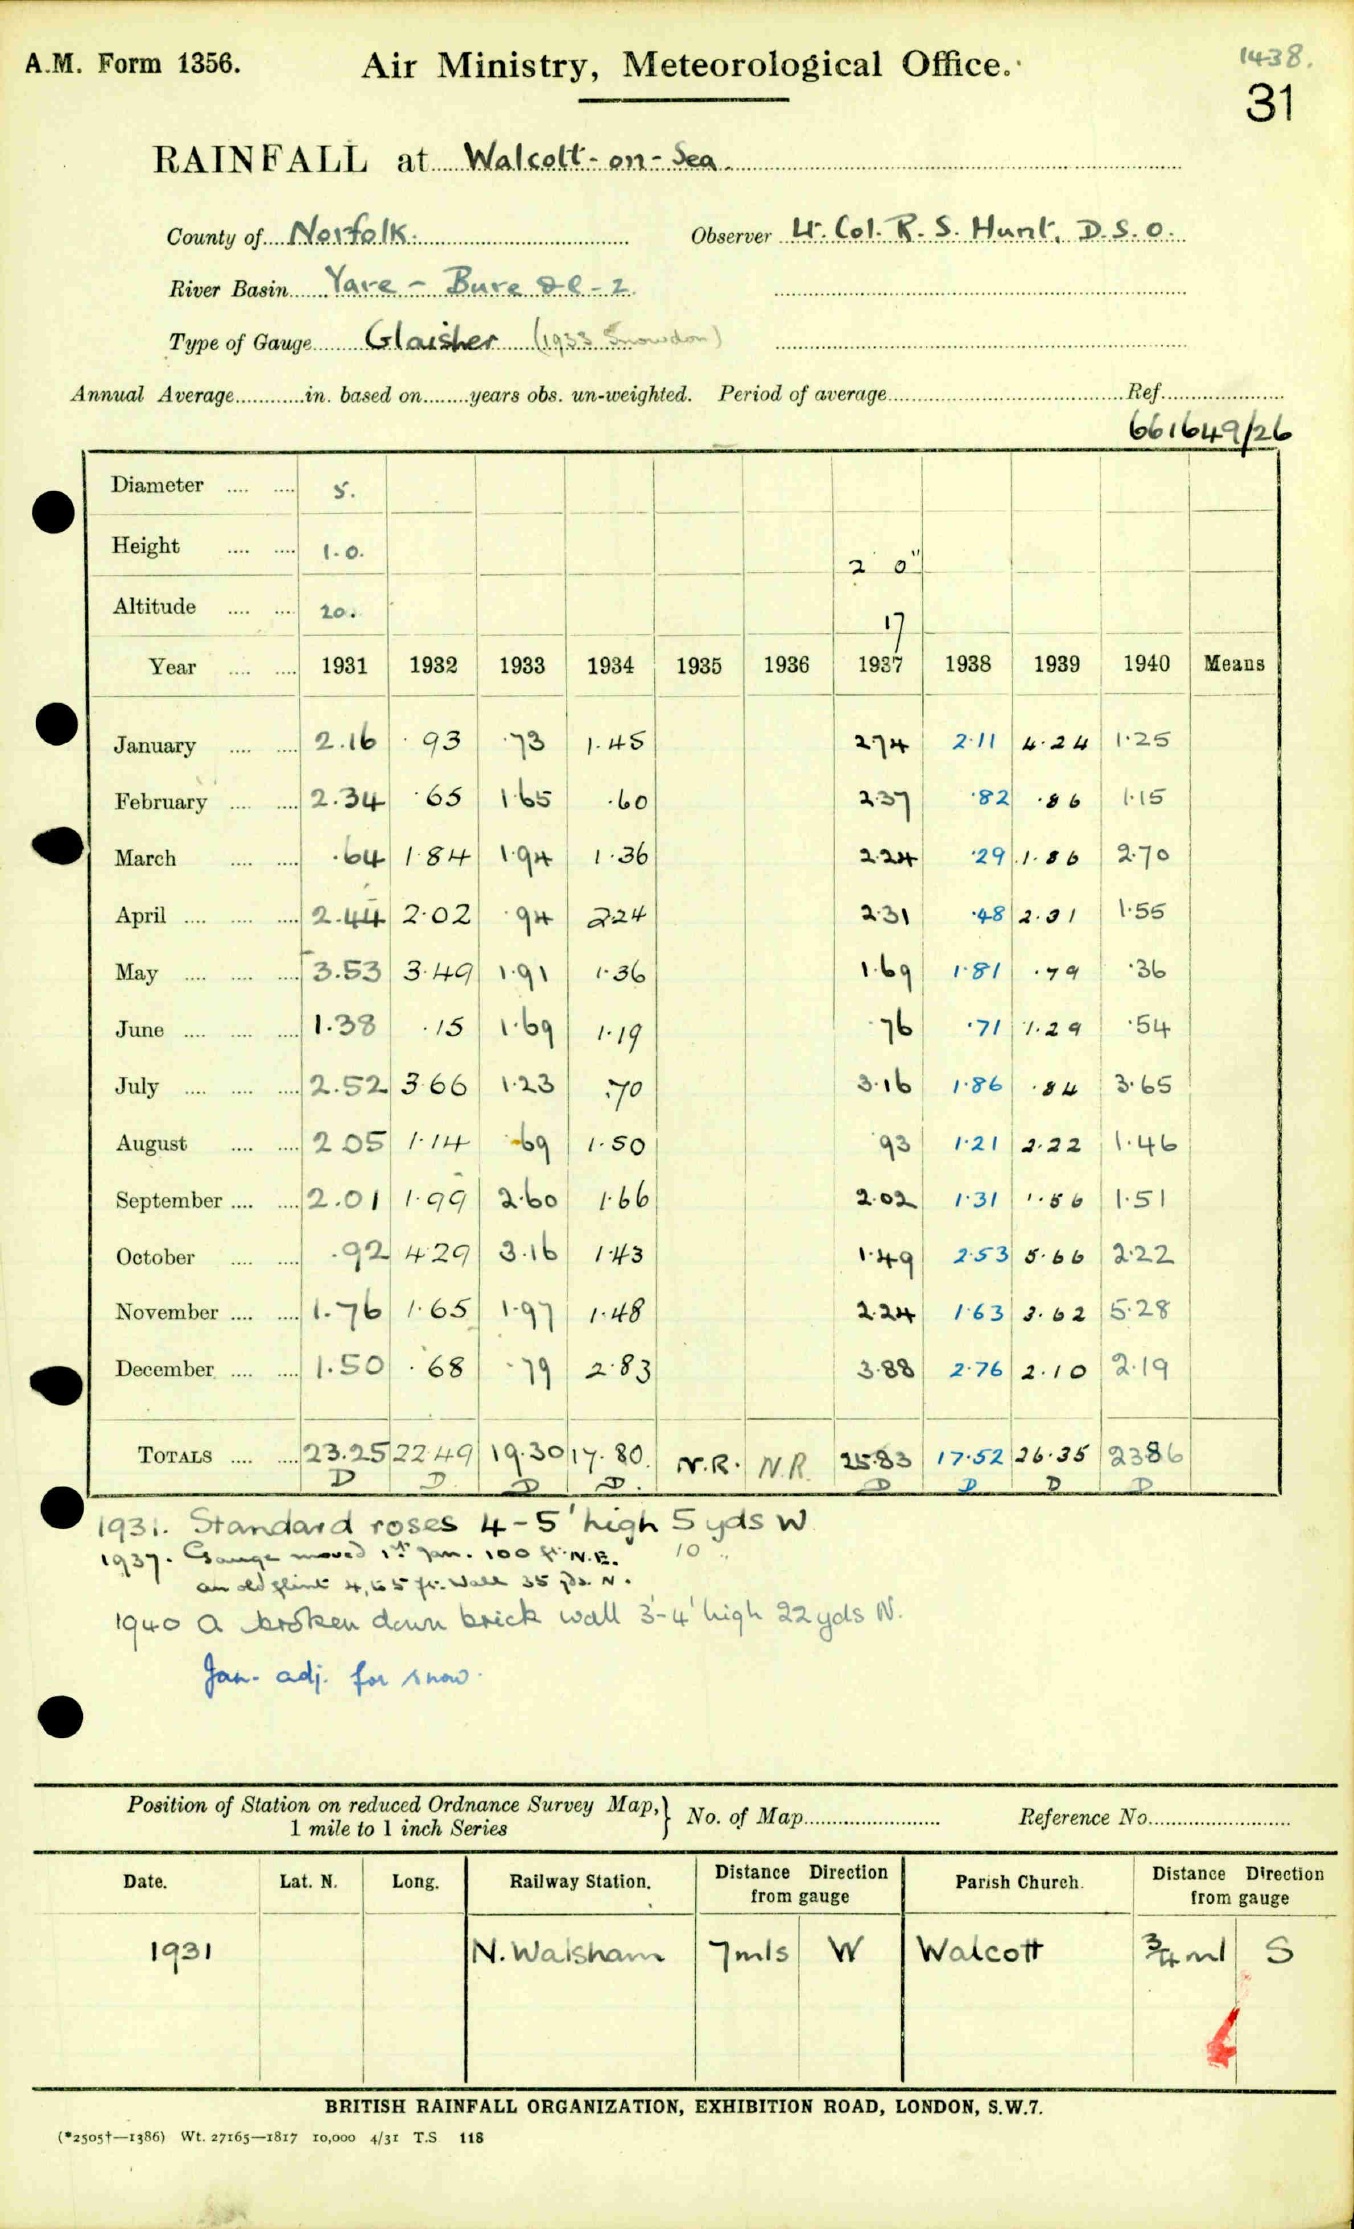 A.M. Form 1356.
Air Ministry, Meteorological Office.
1438.
31
RAINFALL at Walcott-on-Sea.
County of Norfolk. Observer Lt. Col. R. S. Hunt, D.S.O.
River Basin Yare - Bure &c - 2.
Type of Gauge Glaisher (1933 Snowdon)
Annual Average in. based on years obs. un-weighted. Period of average Ref.
661649/26
Diameter 5.
Height 1.0. 2 0"
Altitude 20. 17
Year 1931 1932 1933 1934 1935 1936 1937 1938 1939 1940 Means
January 2.16 .93 .73 1.45 2.74 2.11 4.24 1.25
February 2.34 .65 1.65 .60 2.37 .82 .86 1.15
March .64 1.84 1.94 1.36 2.24 .29 1.86 2.70
April 2.44 2.02 .94 2.24 2.31 .48 2.31 1.55
May 3.53 3.49 1.91 1.36 1.69 1.81 .79 .36
June 1.38 .15 1.69 1.19 .76 .71 1.29 .54
July 2.52 3.66 1.23 .70 3.16 1.86 .84 3.65
August 2.05 1.14 .69 1.50 .93 1.21 2.22 1.46
September 2.01 1.99 2.60 1.66 2.02 1.31 1.56 1.51
October .92 4.29 3.16 1.43 1.49 2.53 5.66 2.22
November 1.76 1.65 1.97 1.48 2.24 1.63 3.62 5.28
December 1.50 .68 .79 2.83 3.88 2.76 2.10 2.19
TOTALS 23.25 22.49 19.30 17.80. N.R. N.R. 25.83 17.52 26.35 23.86
D D. D D. D D D D
1931. Standard roses 4-5' high 5 yds W
1937. Gauge moved 1st Jan. 100 ft. N.E. 10 "
an old flint 4 to 5 ft. wall 35 yds. N.
1940 A broken down brick wall 3'-4' high 22 yds N.
Jan. adj. for snow.
Position of Station on reduced Ordnance Survey Map, } No. of Map Reference No.
1 mile to 1 inch Series
Date. Lat. N. Long. Railway Station. Distance Direction from gauge Parish Church. Distance Direction from gauge
1931 N. Walsham 7 mls W Walcott 3/4 ml S
BRITISH RAINFALL ORGANIZATION, EXHIBITION ROAD, LONDON, S.W.7.
(*2505†—1386) Wt. 27165—1817 10,000 4/31 T.S 118